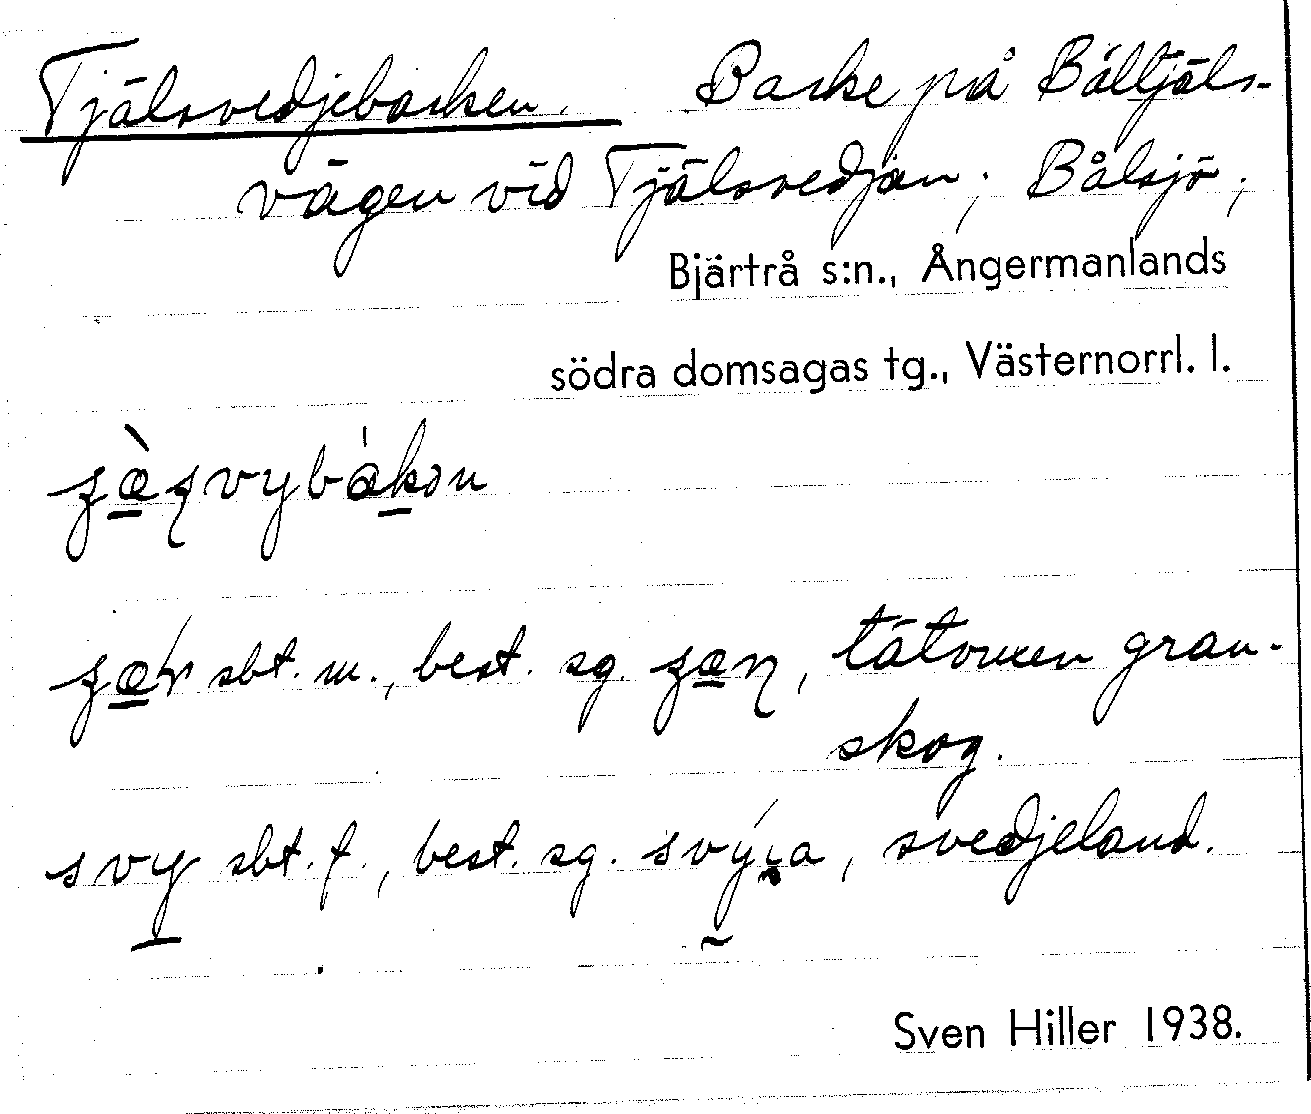 Tjälsvedjebacken. Backe på Bålltjäls-
vägen vid Tjälsvedjan; Bålsjö;
Bjärtrå s:n., Ångermanlands
södra domsagas tg., Västernorrl. l.
sbt. m., best. sg. tätvuxen gran-
skog.
svy sbt. f., best. sg. svedjeland.
Sven Hiller 1938.